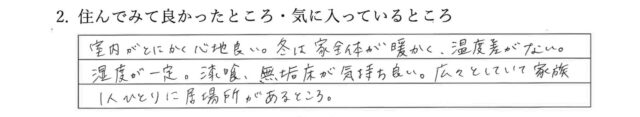 2. 住んでみて良かったところ・気に入っているところ
室内がとにかく心地良い。冬は家全体が暖かく、温度差がない。
湿度が一定。漆喰、無垢床が気持ち良い。広々としていて家族
1人ひとりに居場所があるところ。